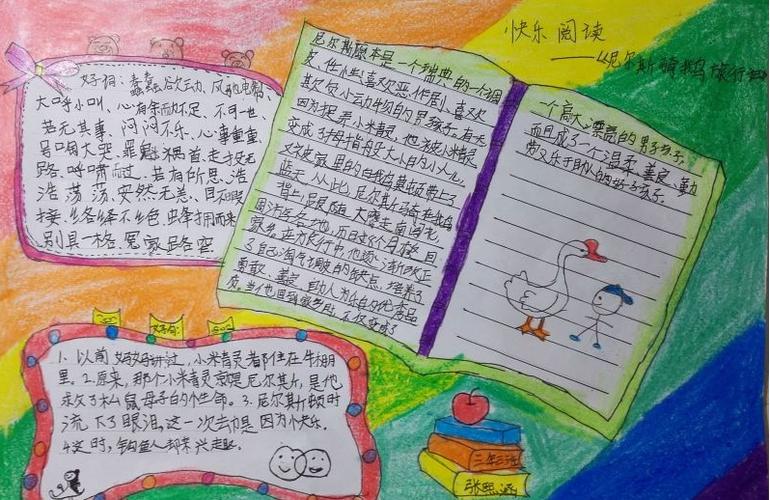 快乐阅读
——《尼尔斯骑鹅旅行记》
好词：蠢蠢欲动、风驰电掣、
大呼小叫、心有余而力不足、不可一世、
若无其事、闷闷不乐、心事重重、
号啕大哭、罪魁祸首、走投无
路、呼啸而过、若有所思、浩
浩荡荡、安然无恙、目不暇
接、络绎不绝、蜂拥而来、
别具一格、
尼尔斯原本是一个瑞典的一个调
皮、性生喜欢恶作剧、喜欢
欺负小动物的男孩子。有天
因为捉弄小米精灵，他被小米精灵
变成了拇指般大小的小人儿，
又被家里的白鹅莫顿带上了
蓝天。从此，尼尔斯骑在鹅
背上，跟随大雁走南闯北，
周游各地，历时8个月才返回
家乡。在旅行中，他逐渐改正
了自己淘气调皮的缺点，培养了
勇敢、善良、助人为乐的优秀品
质。当他回到家乡时，不仅变成了
一个高大漂亮的男子孩子，
而且成了一个温柔、善良、勤劳
又乐于助人的好孩子。
好句：
1. 以前妈妈讲过，小米精灵都住在牛棚
里。2. 原来，那个小米精灵就是尼尔斯，是他
救了松鼠母子的性命。3. 尼尔斯顿时
流下了眼泪，这一次去是因为快乐。
4. 这时，钩鱼人却来兴趣。
三年三班
张熙涵